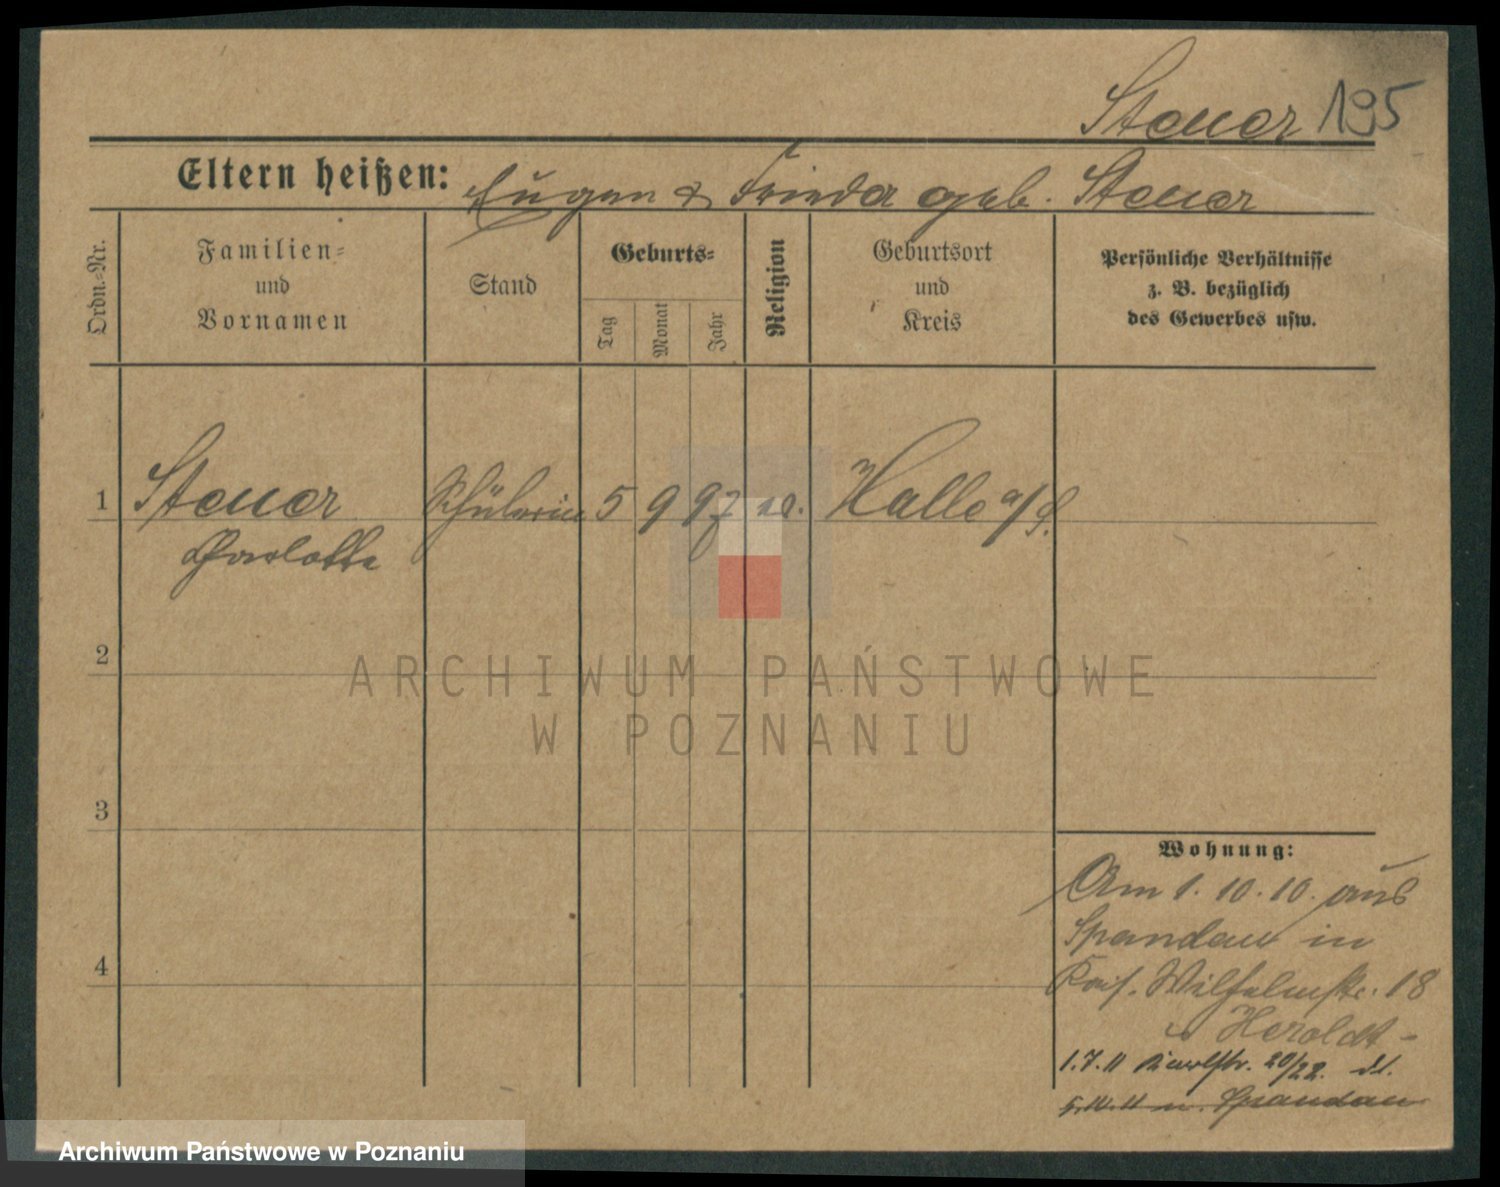 Steuer 195
Eltern heißen: Eugen & Frieda geb. Steuer
Ordn.-Nr.
Familien-
und
Vornamen
Stand
Geburts-
Tag
Monat
Jahr
Religion
Geburtsort
und
Kreis
Persönliche Verhältnisse
z. B. bezüglich
des Gewerbes usw.
1 Steuer Schülerin 5 9 97 Halle a/S.
Charlotte
2
ARCHIWUM PAŃSTWOWE
W POZNANIU
3
Wohnung:
Am 1. 10. 10. aus
Spandau in
4
Kais. Wilhelmstr. 18
Heroldt
1.7.11 20/22. dt.
n. Spandau
Archiwum Państwowe w Poznaniu